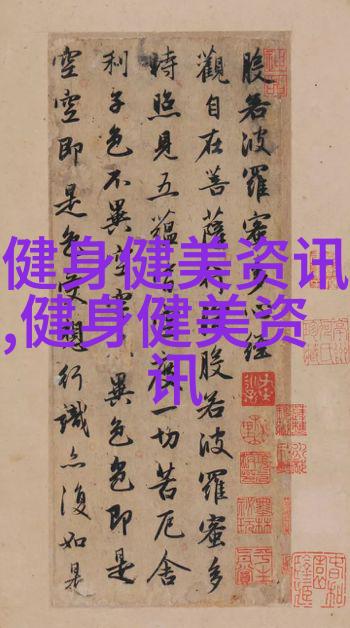 般若波羅蜜多心經
觀自在菩薩行深般若波羅蜜多
時照見五蘊皆空度一切苦厄舍
利子色不異空空不異色色即是
空空即是色受想行識亦復如是
健身健美资讯
,健身健美资
讯